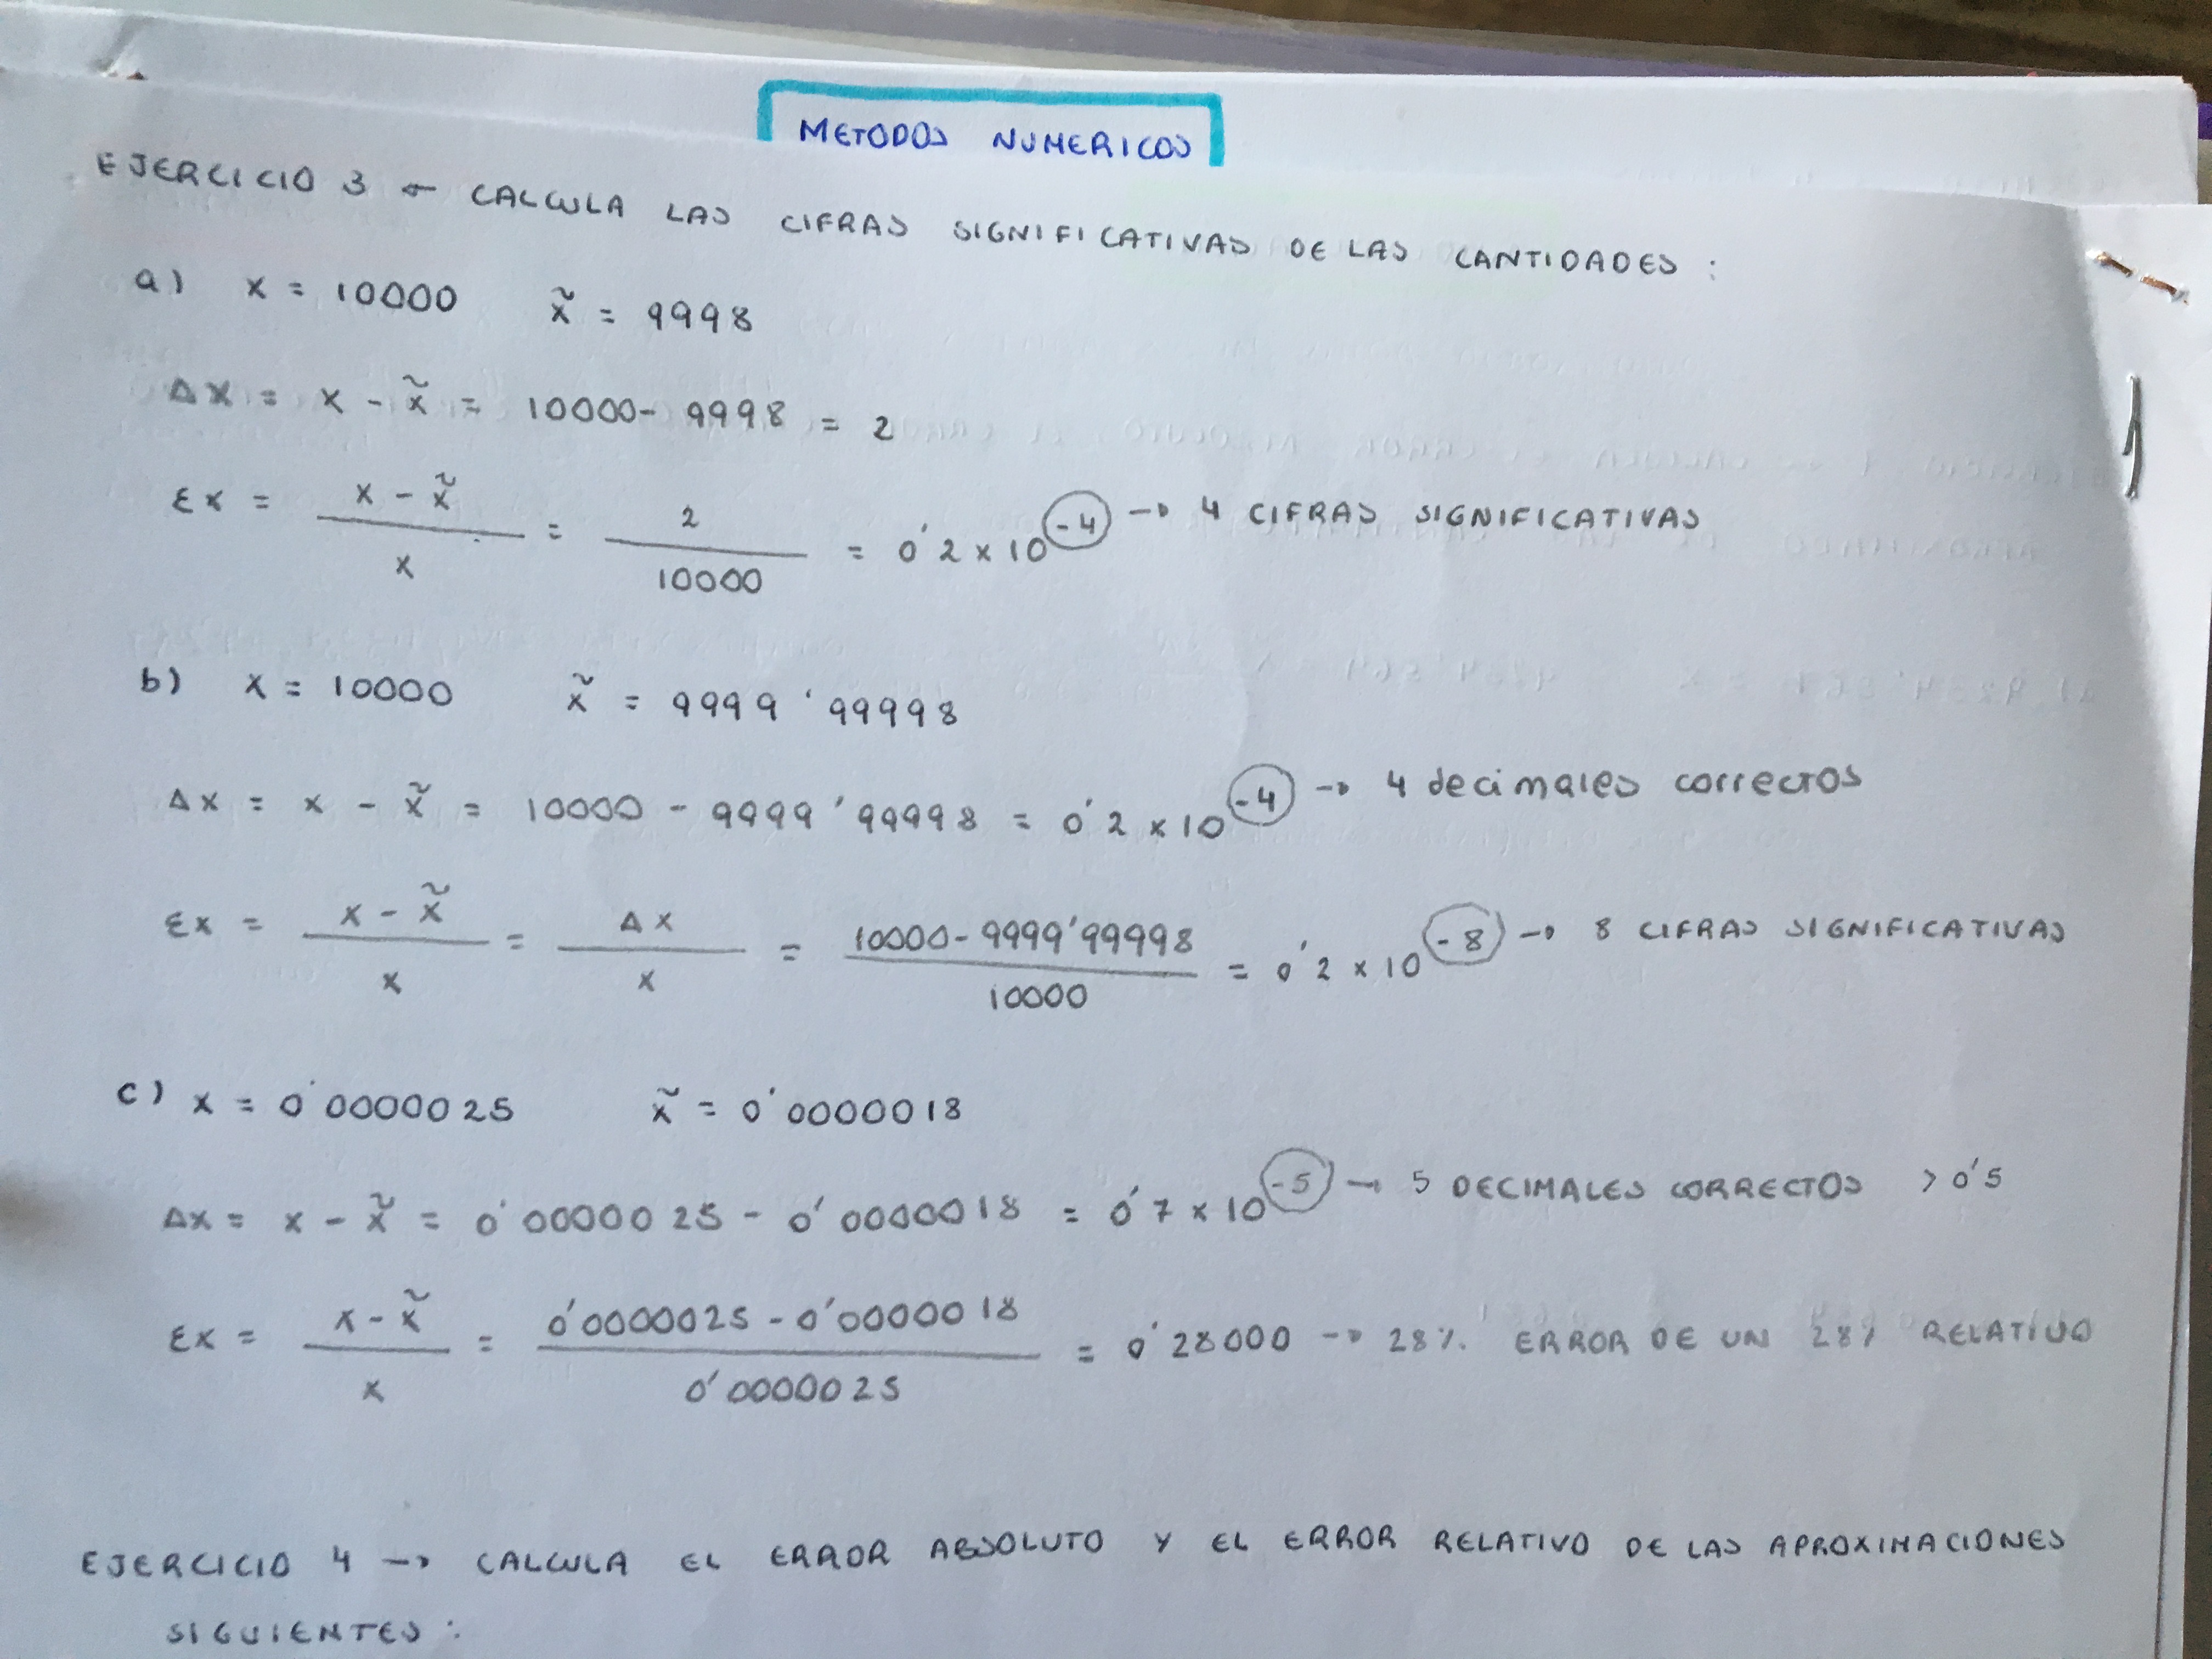 METODOS NUMERICOS
EJERCICIO 3 ← CALCULA LAS CIFRAS SIGNIFICATIVAS DE LAS CANTIDADES :
a) x = 10000 x̃ = 9998
Δx = x - x̃ = 10000 - 9998 = 2
Ex = (x - x̃)/x = 2/10000 = 0'2 x 10^-4 → 4 CIFRAS SIGNIFICATIVAS
b) x = 10000 x̃ = 9999'99998
Δx = x - x̃ = 10000 - 9999'99998 = 0'2 x 10^-4 → 4 decimales correctos
Ex = (x - x̃)/x = Δx/x = (10000 - 9999'99998)/10000 = 0'2 x 10^-8 → 8 CIFRAS SIGNIFICATIVAS
c) x = 0'0000025 x̃ = 0'0000018
Δx = x - x̃ = 0'0000025 - 0'0000018 = 0'7 x 10^-5 → 5 DECIMALES CORRECTOS > 0'5
Ex = (x - x̃)/x = (0'0000025 - 0'0000018)/0'0000025 = 0'28000 → 28%. ERROR DE UN 28% RELATIVO
EJERCICIO 4 → CALCULA EL ERROR ABSOLUTO Y EL ERROR RELATIVO DE LAS APROXIMACIONES
SIGUIENTES :